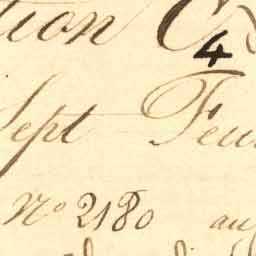 tion C
4
Sept Feu
No 2180 au